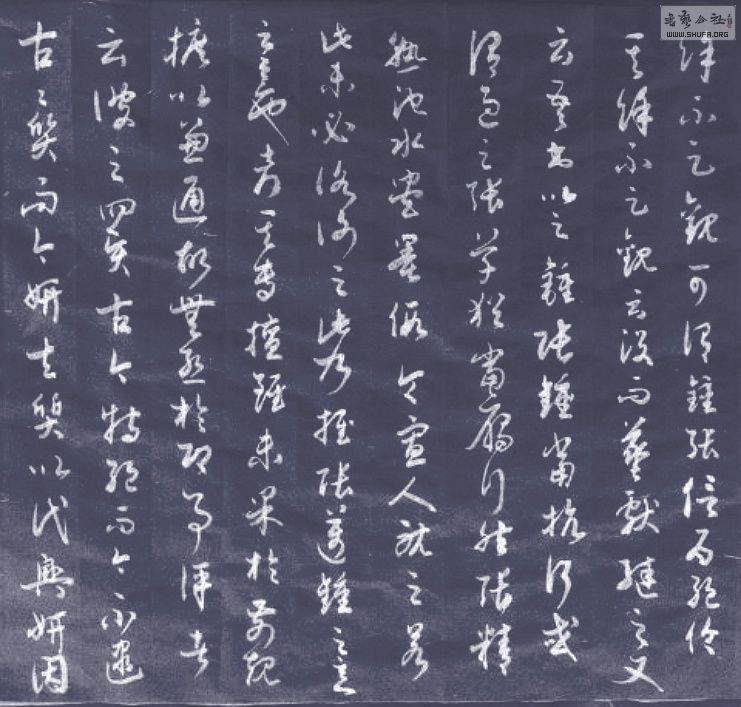 書藝公社
WWW.SHUFA.ORG
餘不足觀可謂鍾張信為絕倫
其餘不足觀云沒而羲獻繼之又
云吾書比之鍾張鍾當抗行或
謂過之張草猶當鴈行然張精
熟池水盡墨假令寡人耽之若
此未必謝之此乃推張邁鍾之意
也考其專擅雖未果於前規
摭以兼通故無慚於即事評者
云彼之四賢古今特絕而今不逮
古〻質而今妍夫質以代興妍因